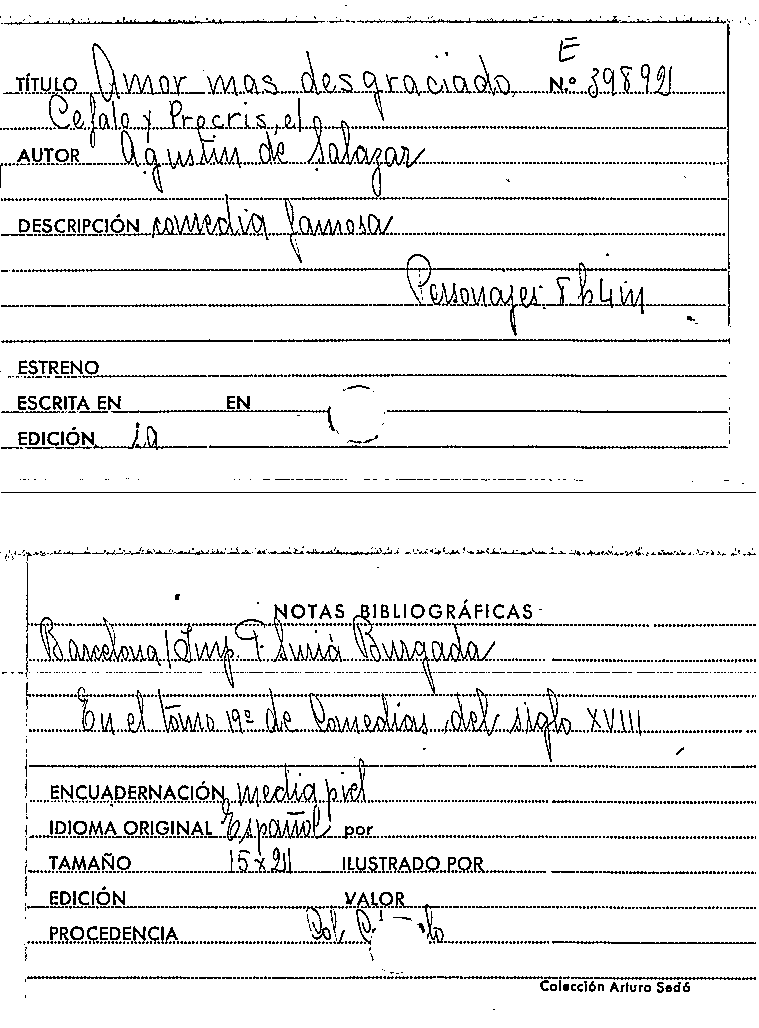 E
TÍTULO Amor mas desgraciado, N.º 398921
Cefalo y Precris, el
AUTOR Agustin de Salazar
DESCRIPCIÓN comedia famosa
Personajes: 8 h 4 m
ESTRENO
ESCRITA EN EN
EDICIÓN 1a
NOTAS BIBLIOGRÁFICAS
Barcelona/Imp. F. Suriá Burgada
En el tomo 19º de Comedias del siglo XVIII
ENCUADERNACIÓN media piel
IDIOMA ORIGINAL Español por
TAMAÑO 15 x 21 ILUSTRADO POR
EDICIÓN VALOR
PROCEDENCIA Col.
Colección Arturo Sedó